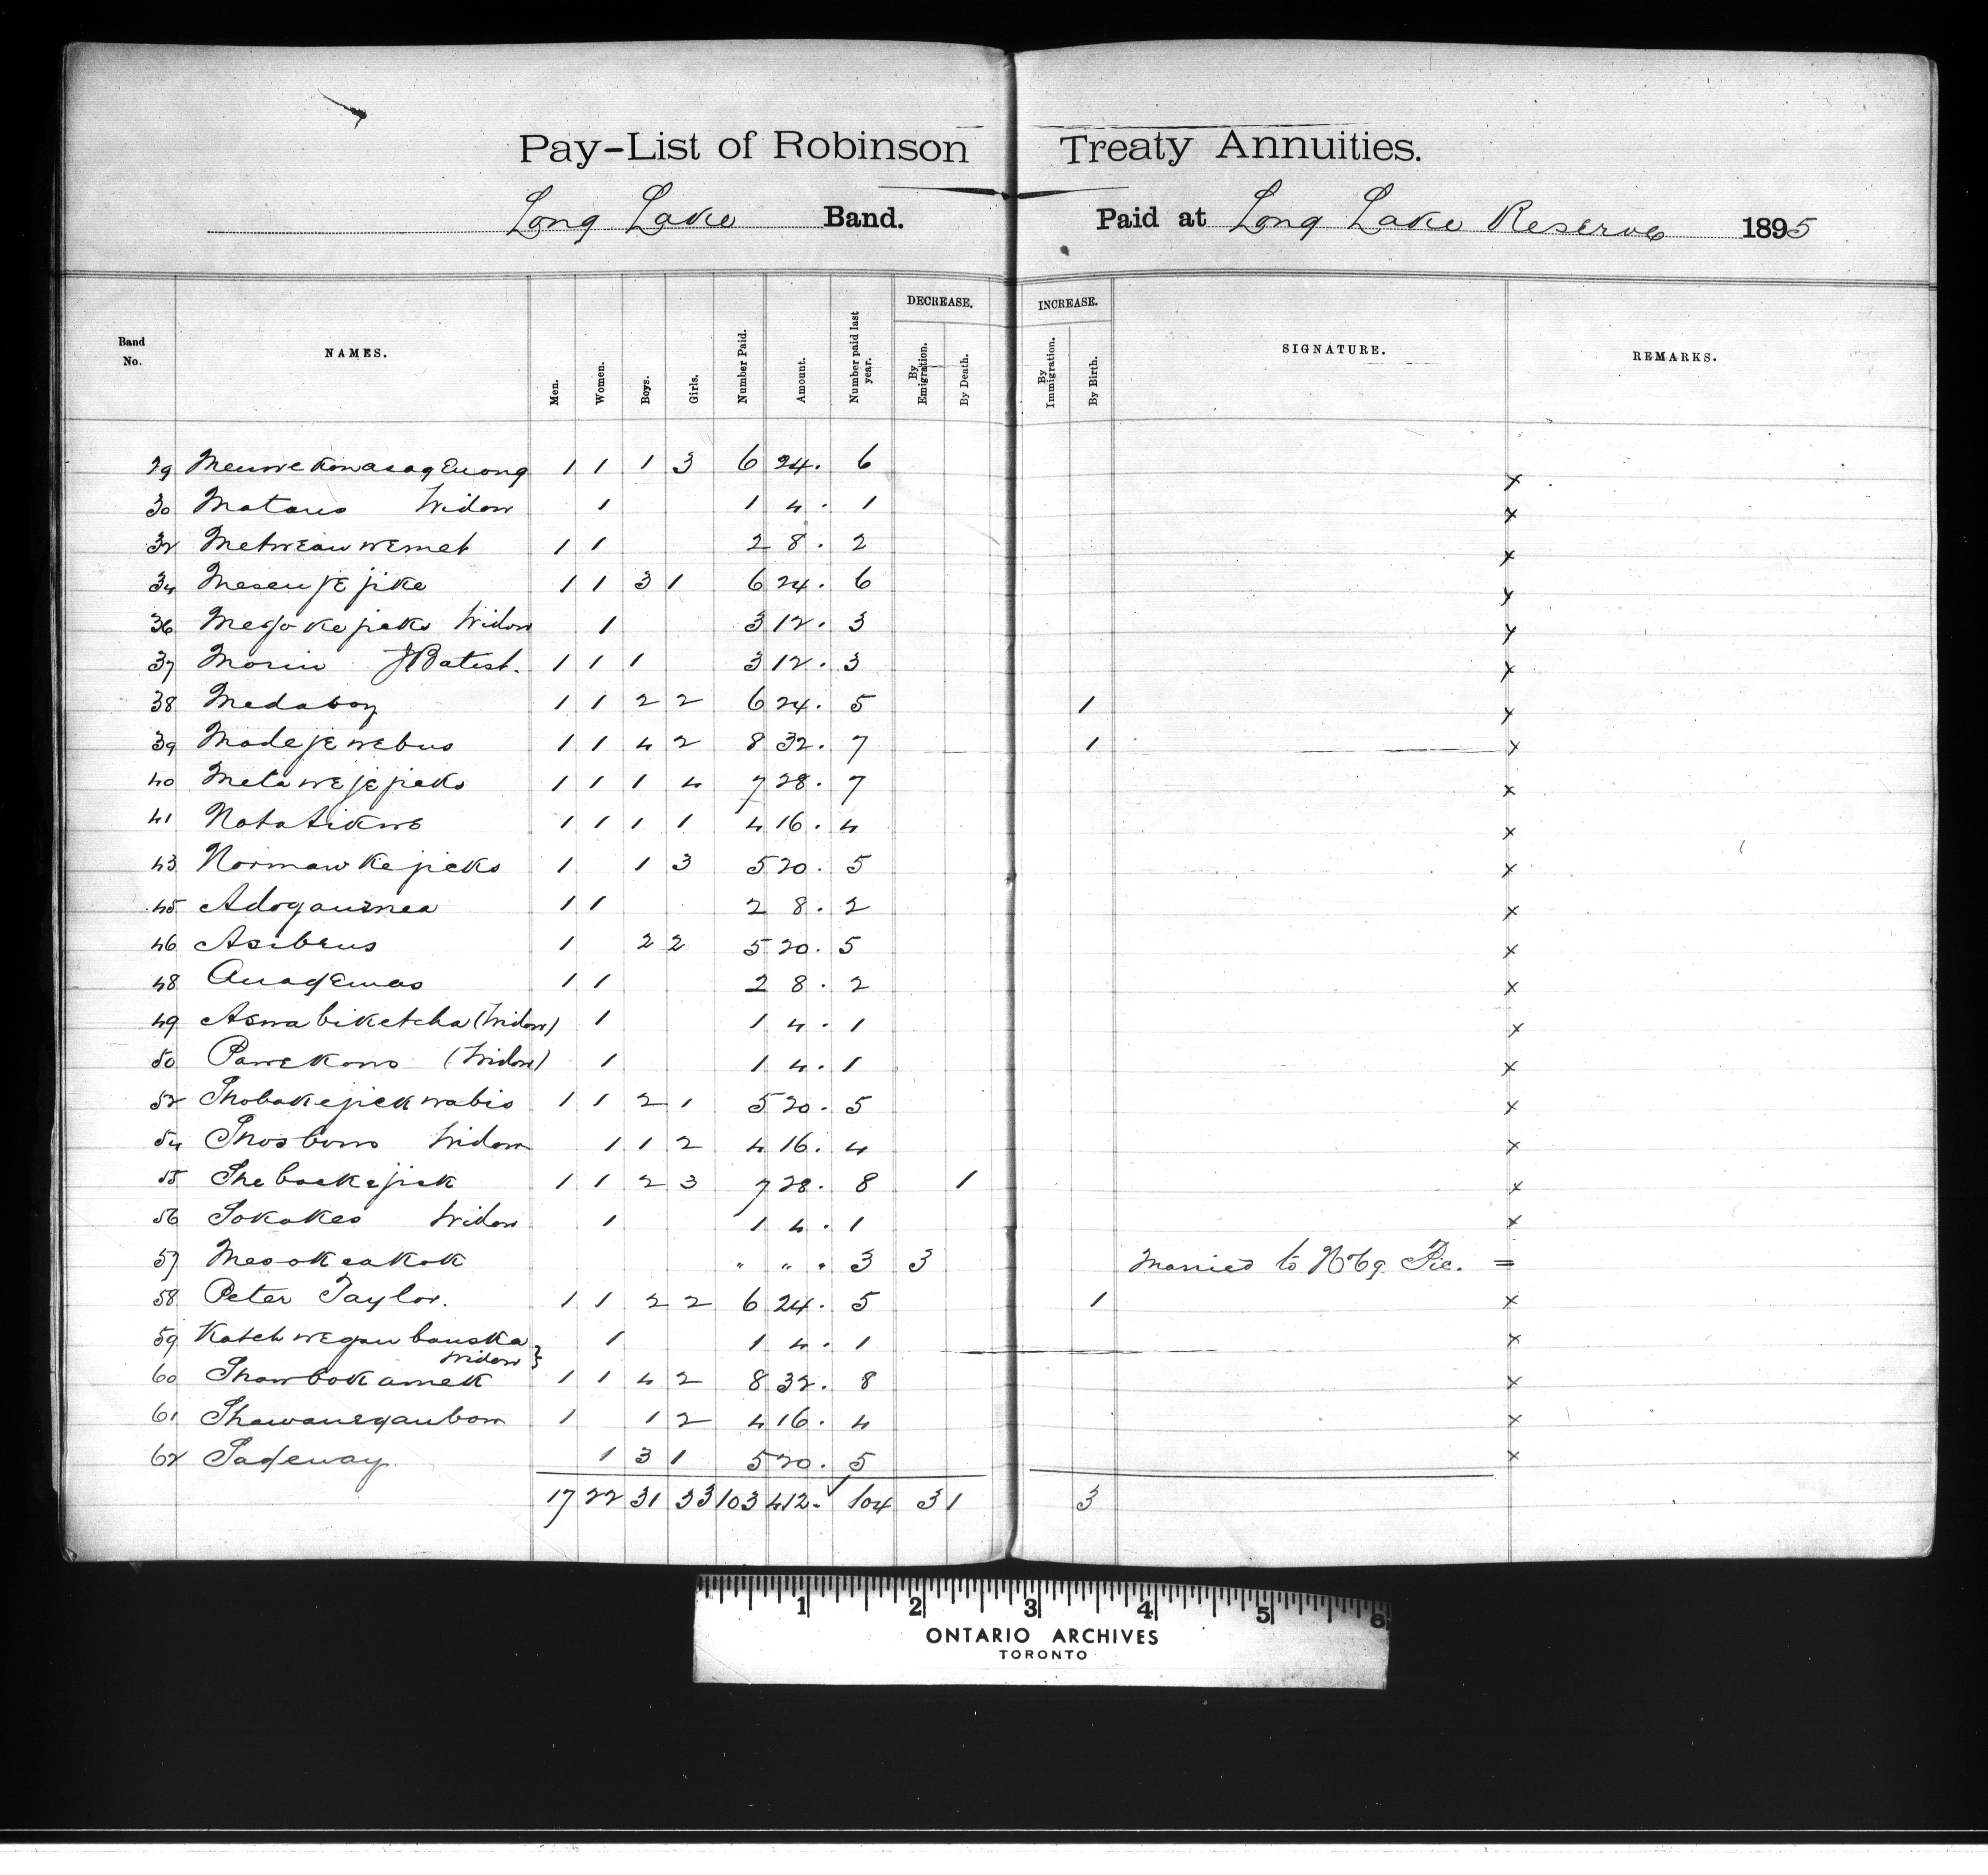 Pay-List of Robinson Treaty Annuities.
Long Lake Band. Paid at Long Lake Reserve 1895
Band No. NAMES. Men. Women. Boys. Girls. Number Paid. Amount. Number paid last year. DECREASE. By Emigration. By Death. INCREASE. By Immigration. By Birth. SIGNATURE. REMARKS.
29 1 1 1 3 6 24. 6 x
30 Matans Widow 1 1 4. 1 x
32 Metweauwemet 1 1 2 8. 2 x
34 Mesenjejike 1 1 3 1 6 24. 6 x
36 Widow 1 3 12. 3 x
37 Morin JBatist. 1 1 1 3 12. 3 x
38 Medaboy 1 1 2 2 6 24. 5 1 x
39 Madejewebus 1 1 4 2 8 32. 7 1 x
40 Metawejejeks 1 1 1 4 7 28. 7 x
41 Notatikwe 1 1 1 1 4 16. 4 x
43 Normawkejicks 1 1 3 5 20. 5 x
45 Adogaumea 1 1 2 8. 2 x
46 Asibeus 1 2 2 5 20. 5 x
48 Auagemas 1 1 2 8. 2 x
49 Aswabiketcha (Widow) 1 1 4. 1 x
50 Pawekons (Widow) 1 1 4. 1 x
52 Shobakejickwabis 1 1 2 1 5 20. 5 x
54 Shosbows Widow 1 1 2 4 16. 4 x
55 Shebackejick 1 1 2 3 7 28. 8 1 x
56 Sokakes Widow 1 1 4. 1 x
57 Mesokeakok " " " 3 3 Married to Pic. =
58 Peter Taylor. 1 1 2 2 6 24. 5 1 x
59 Katchwegaubauska 1 1 4. 1 x
Widow }
60 Shawbokamek 1 1 4 2 8 32. 8 x
61 Shawanegaubow 1 1 2 4 16. 4 x
62 Sageway 1 3 1 5 20. 5 x
17 22 31 33 103 412. 104 3 1 3
1 2 3 4 5 6
ONTARIO ARCHIVES
TORONTO